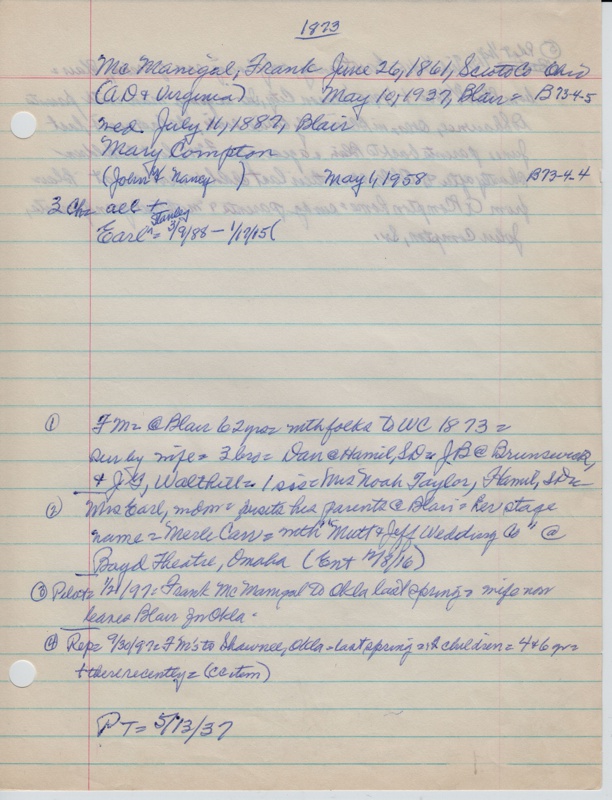 1873
Mc Manigal, Frank June 26, 1861, Scioto Co Ohio
(A.D. + Virginia) May 10, 1937, Blair = B73-4-5
med. July 11, 1887, Blair
Mary Compton
(John + Nancy ) May 1, 1958 B73-4-4
3 Ch = all +
Stanley
Earl ^ = 3/9/88 - 1/17/15(
① F M = @ Blair 62 yrs = wth folks to WC 1873 =
sur by wife = 3 bro = Dan @ Hamil, SD = J B @ Brunswick,
+ J G, Walthill = 1 sis = Mrs Noah Taylor, Hamil, SD =
② Mrs Earl, m + = visits his parents @ Blair = her stage
name = Merle Carr = wth "Mutt + Jeff Wedding Co" @
Boyd Theatre, Omaha (Ent 12/8/16)
③ Pilot = 1/21/97 = Frank McManigal to Okla last spring = wife now
leaves Blair for Okla -
④ Rep = 9/30/97 = F M's to Shawnee, Okla - last spring = 2 children = 4 + 6 yr =
+ there recently = (CC item)
P T = 5/13/37